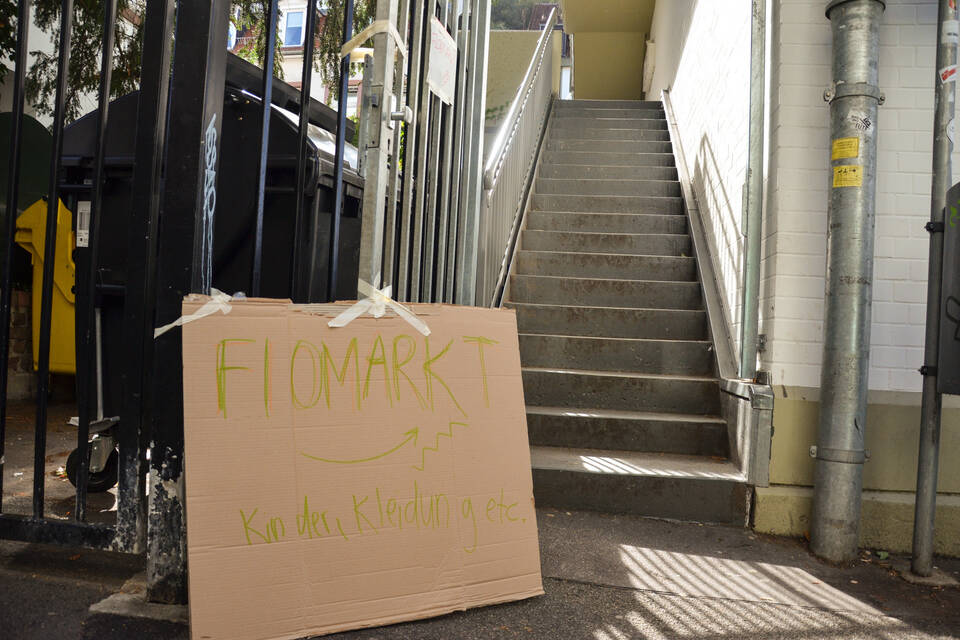 FlOMARKT
Kinder, Kleidung etc.